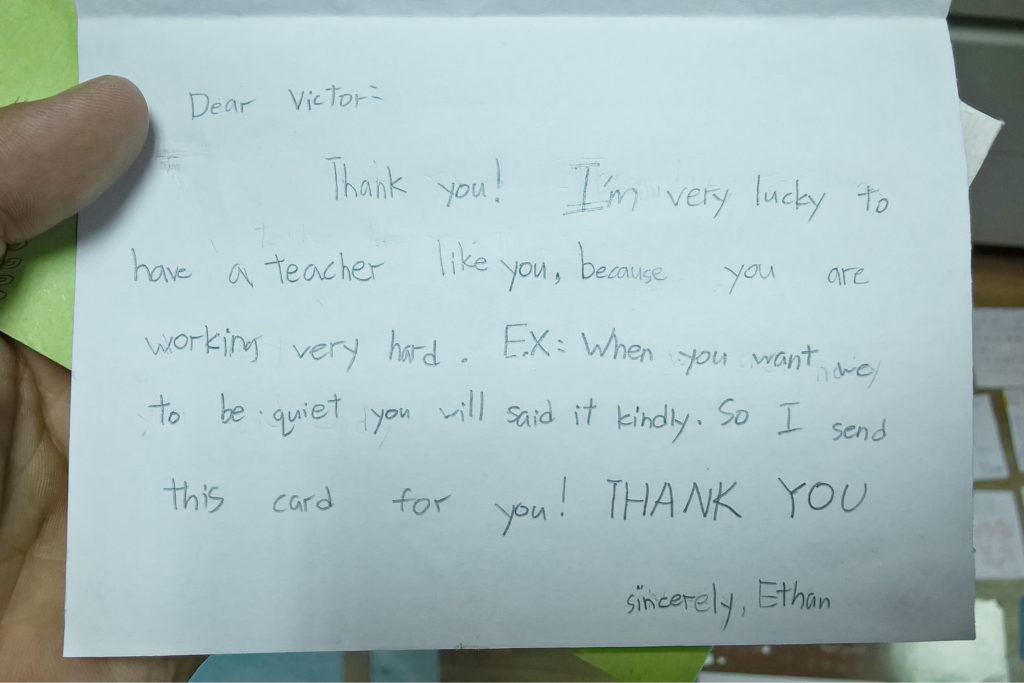 Dear Victor:
Thank you! I'm very lucky to
have a teacher like you, because you are
working very hard. EX: When you want
to be quiet you will said it kindly. So I send
this card for you! THANK YOU
sincerely, Ethan